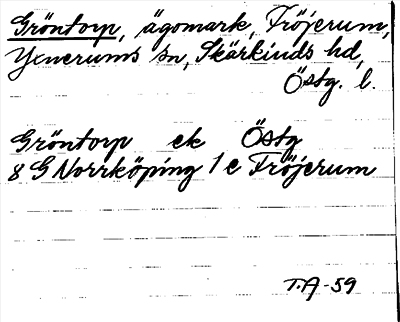 Gröntorp, ägomark, Fröjerum,
Yxnerums sn, Skärkinds hd,
Östg. l.
Gröntorp ek Östg
8 G Norrköping 1 e Fröjerum
T.A-59